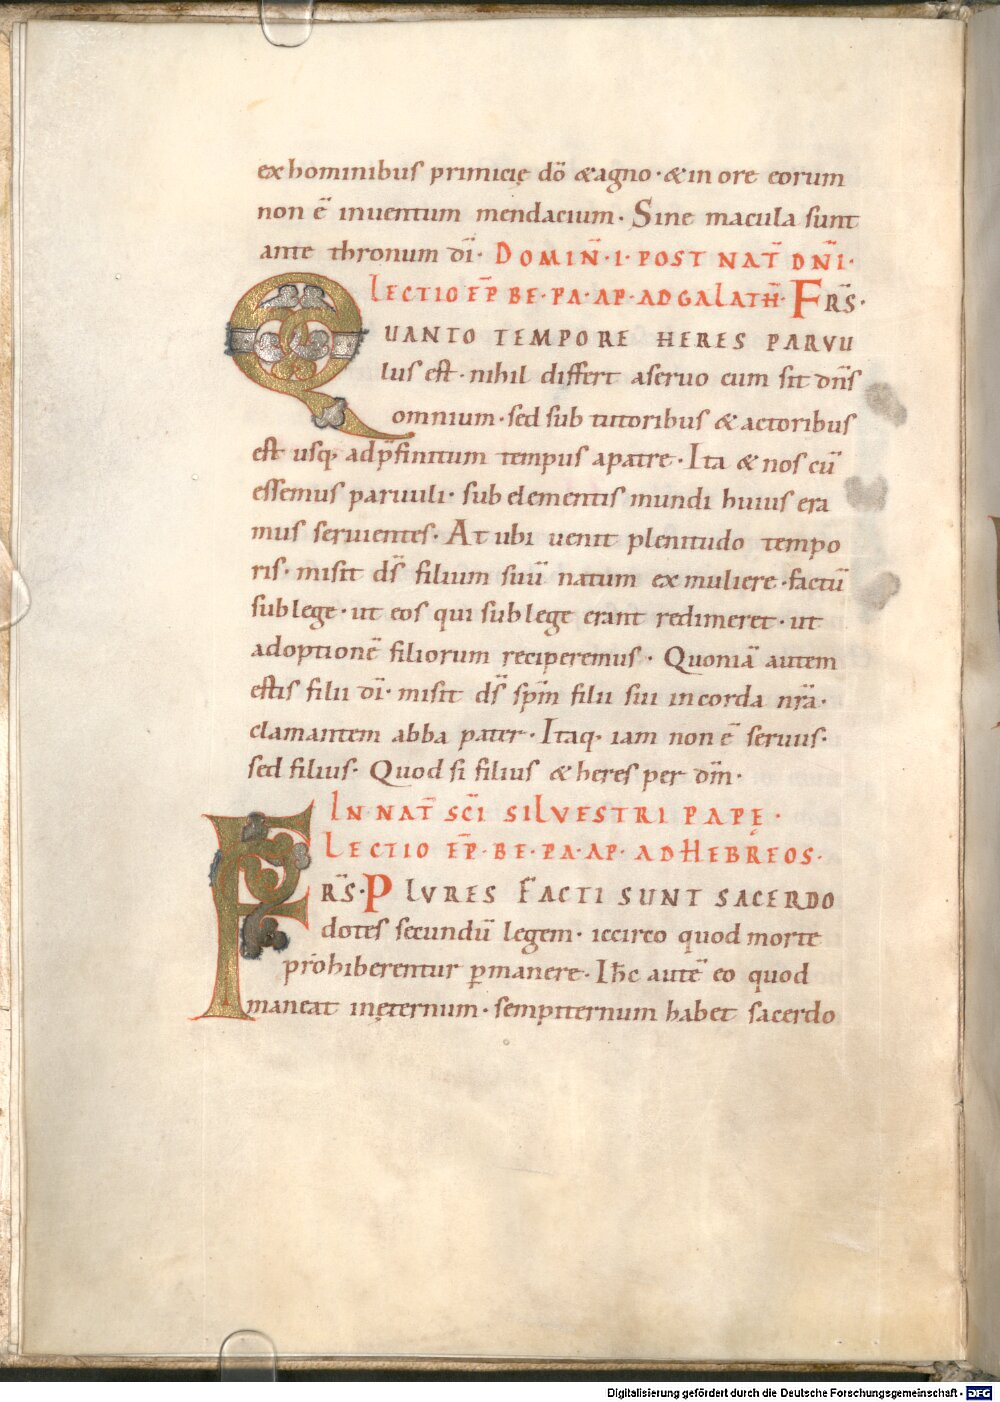 ex hominibus primicię dō & agno · & in ore eorum
non ē inuentum mendacium · Sine macula sunt
ante thronum dī · DOMIN̄ · I · POST NAT̄ DN̄I ·
LECTIO EP̄ BE · PA · AP · AD GALATH̄ · FR̄S ·
QUANTO TEMPORE HERES PARVU
lus est · nihil differt aseruo cum sit dn̄s
omnium · sed sub tutoribus & actoribus
est usq· adp̄finitum tempus apatre · Ita & nos cū
essemus paruuli · sub elementis mundi huius era
mus seruientes · At ubi uenit plenitudo tempo
ris · misit ds̄ filium suū natum ex muliere · factū
sub lege · ut eos qui sub lege erant redimeret · ut
adoptionē filiorum reciperemus · Quoniā autem
estis filii dī · misit ds̄ sp̄m filii sui in corda nr̄a ·
clamantem abba pater · Itaq· iam non ē seruus ·
sed filius · Quod si filius & heres per dm̄ ·
IN NAT̄ SC̄I SILVESTRI PAPĘ ·
LECTIO EP̄ · BE · PA · AP · AD HEBREOS ·
FR̄S · PLVRES FACTI SUNT SACERDO
dotes secundū legem · iccirco quod morte
prohiberentur p̱manere · Ih̄c autē eo quod
maneat inęternum · sempiternum habet sacerdo
Digitalisierung gefördert durch die Deutsche Forschungsgemeinschaft - DFG